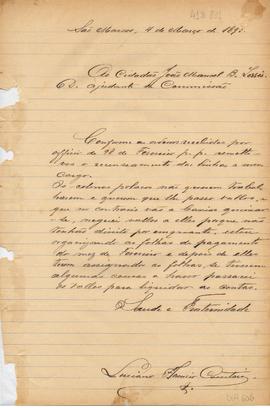 São Marcos, 4 de Março de 189
Ao Cidadão João Manoel B.
D. Ajudante da Commissão
Conforme a ordem recebida por
officio de 28 de Fevereiro p.p. remetto-
vos o recenseamento das linhas a meu
cargo.
Os colonos polacos não querem trabalha-
rem e querem que lhe passe vallos, e
que no contrario vão a
neguei vallos a elles porque não
tenhão direito por emquanto, estou
organizando as folhas de pagamento
do mez de Fevereiro e depois de elles
terem assignado as folhas, se tiverem
alguma cousa a haver passarei
os vallos para liquidar as contas.
Saude e Fraternidade
Luciano